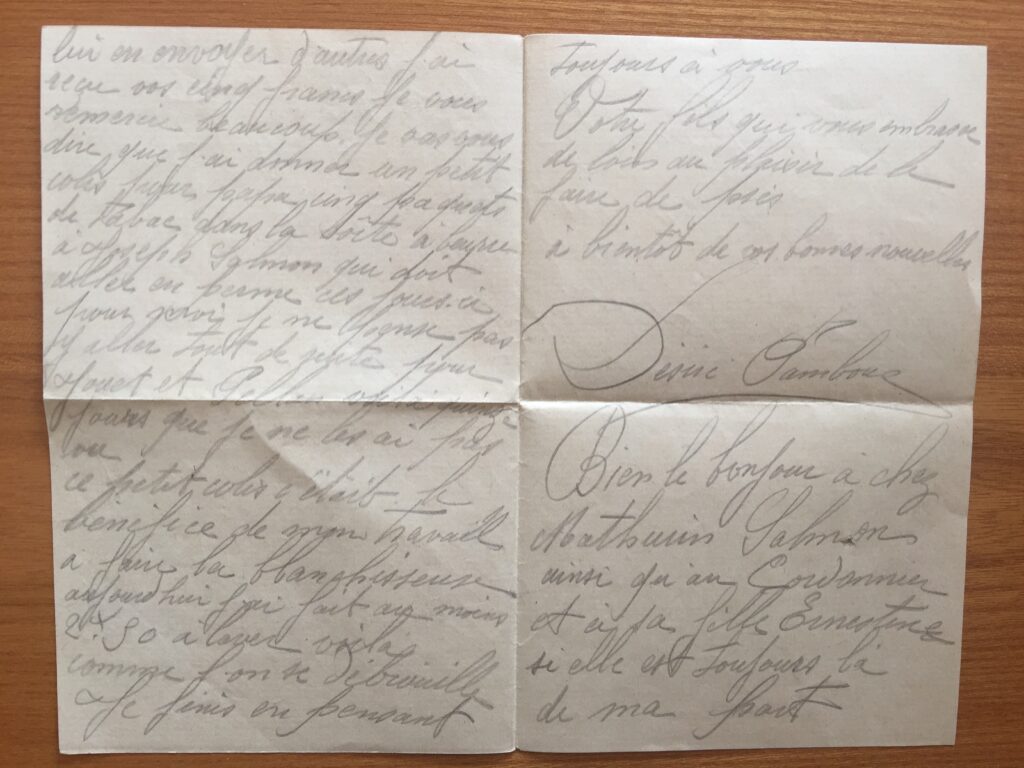 lui en envoyer d'autres j'ai
reçu vos cinq francs je vous
remercie beaucoup. Je vas vous
dire que j'ai donner un petit
colis pour papa cinq paquets
de tabac dans la boîte à beurre
à Joseph Salmon qui doit
aller en perme ces jours ci
pour moi je ne pense pas
y aller tout de suite pour
et
jours que je ne les ai pas
vu
ce petit colis s'était le
bénéfice de mon travail
a faire la blanchisseuse
aujourdhui j'ai fait au moins
2f50 a laver voila
comme l'on se débrouille
Je finis en pensant
toujours à vous
Votre fils qui vous embrasse
de loin au plaisir de le
faire de près
à bientôt de vos bonnes nouvelles
Désiré
Bien le bonjour à chez
Mathurin Salmon
ainsi qu'au Cordonnier
et à sa fille Ernestine
si elle est toujours là
de ma part